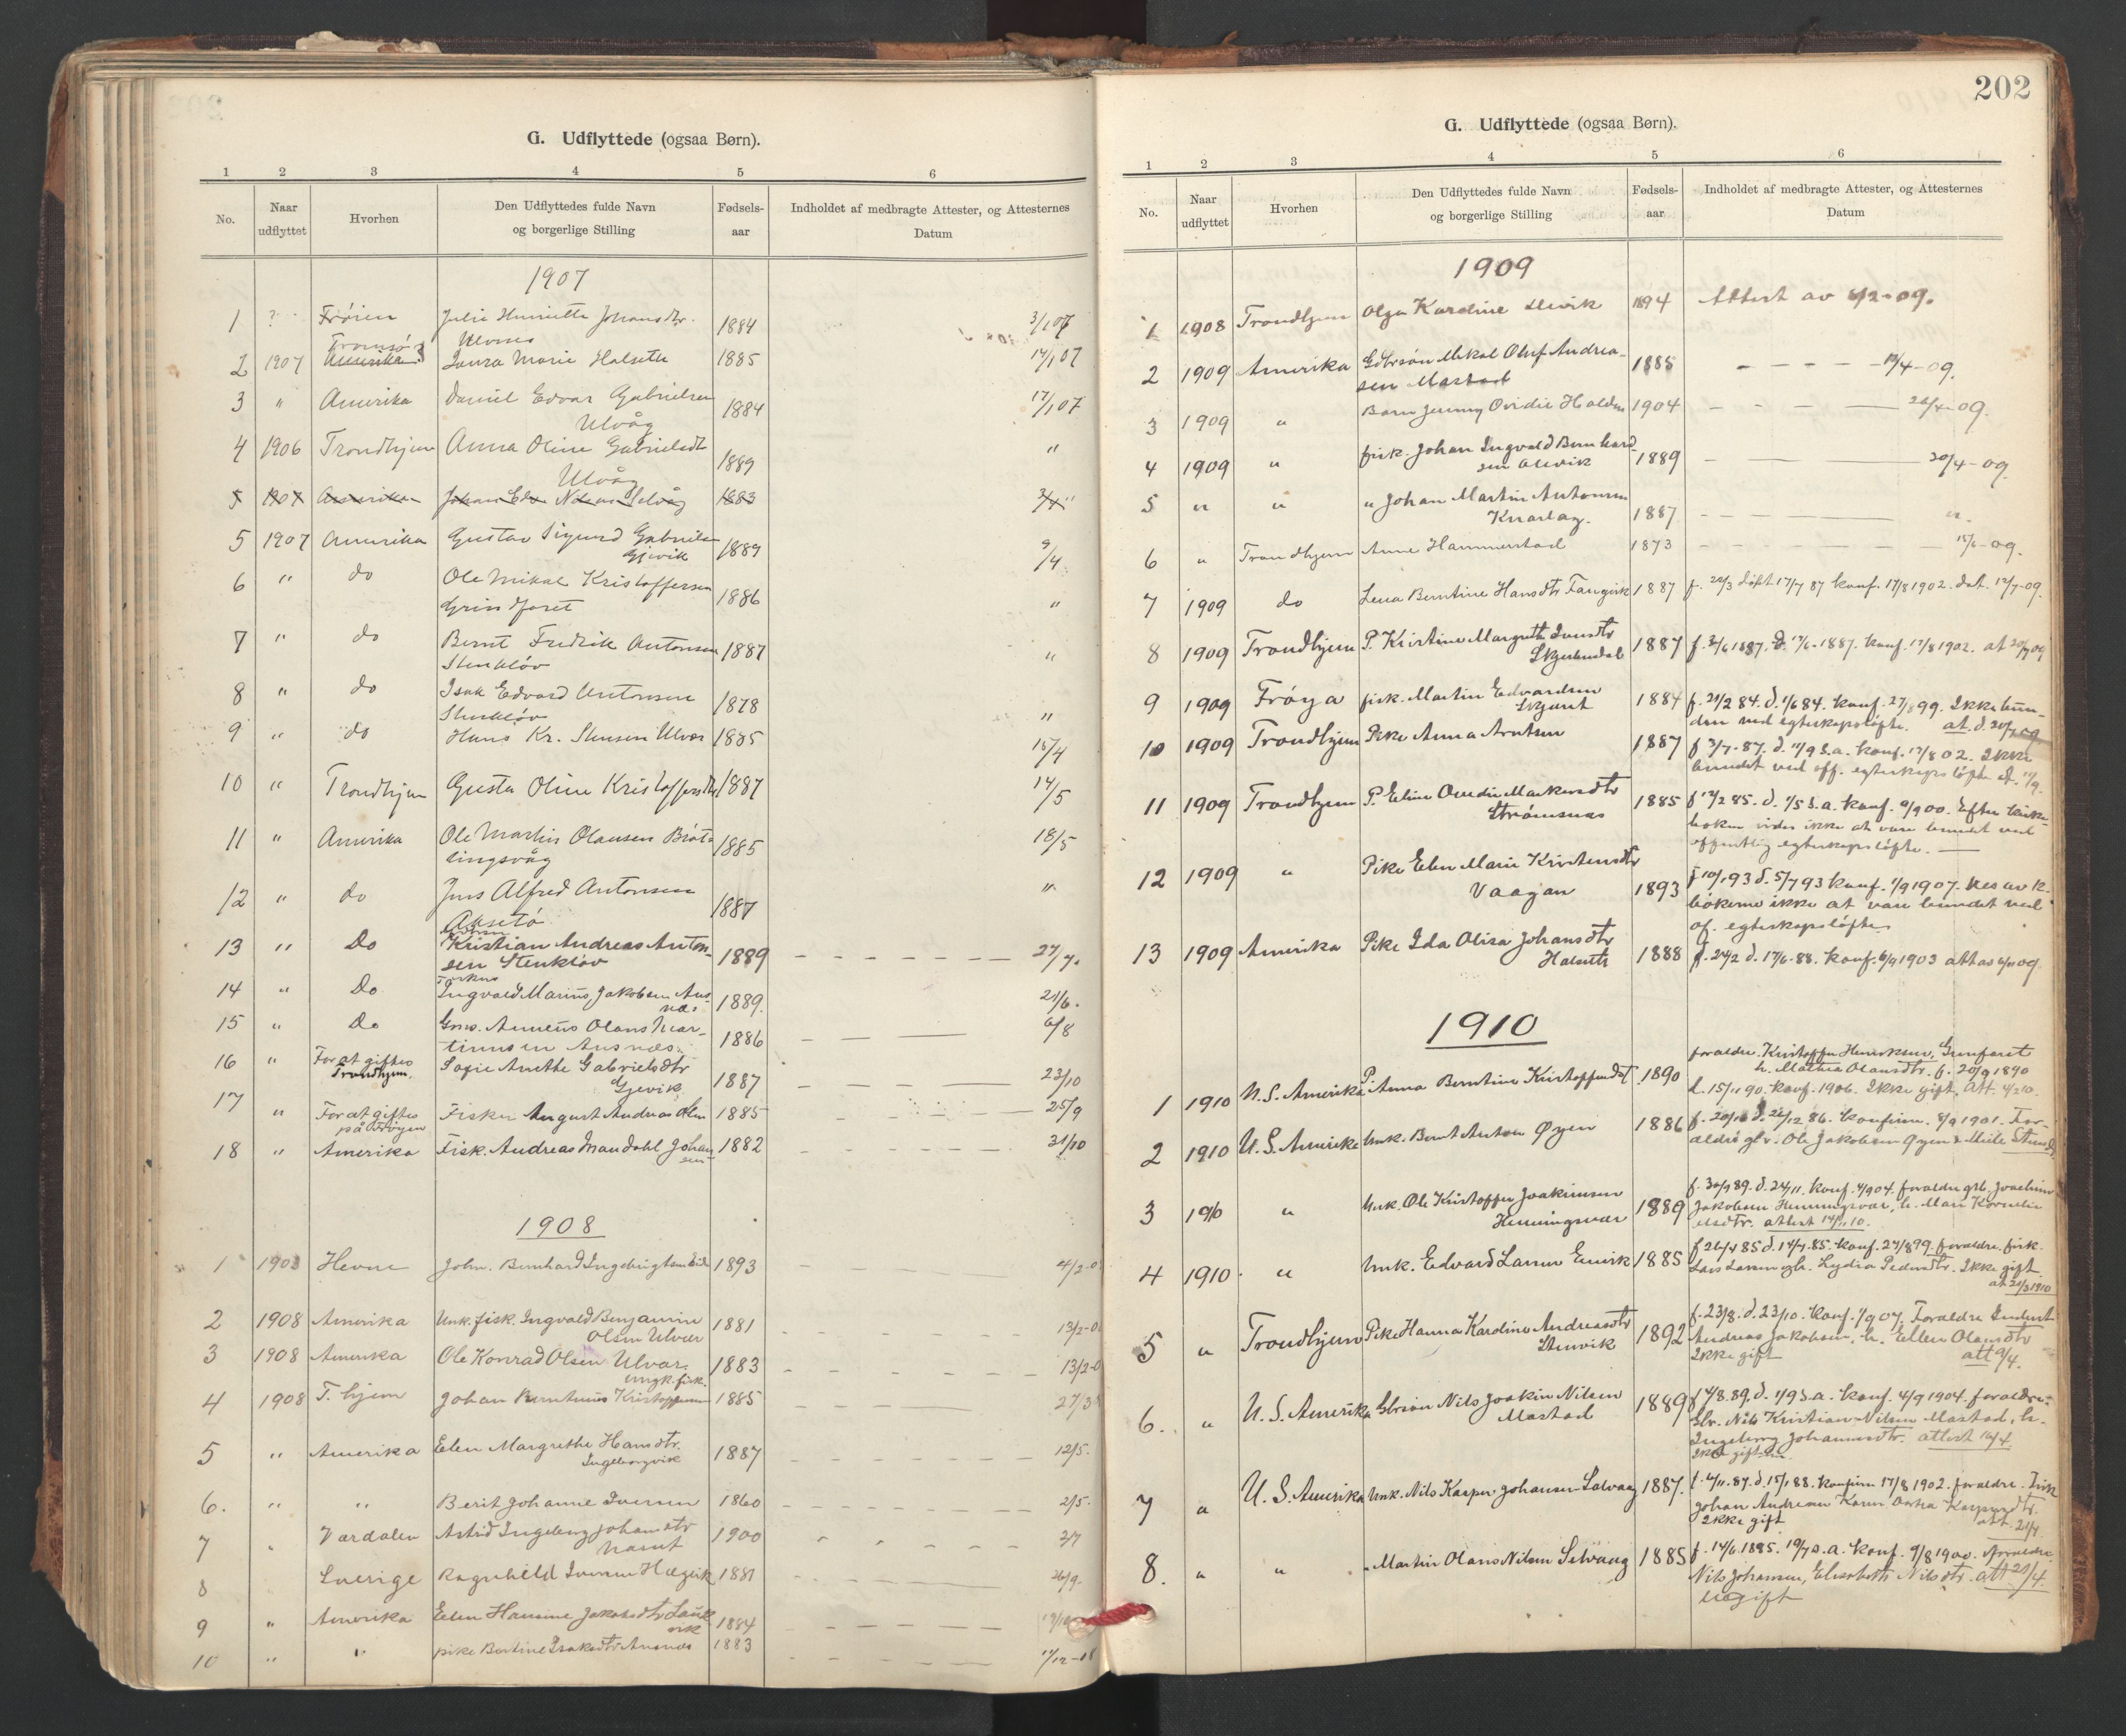 G. Udflyttede (ogsaa Børn).
1 2 3 4 5 6
No. Naar udflyttet Hvorhen Den Udflyttedes fulde Navn og borgerlige Stilling Fødsels-aar Indholdet af medbragte Attester, og Attesternes Datum
1907
1 ? Frøien Julie Henriette Johansdtr. 1884 3/1 07
Tromsø
2 1907 Amerika Laura Marie Halseth 1885 14/1 07
3 " Amerika Daniel Edvar Gabrielsen 1884 17/1 07
Ulvåg
4 1906 Trondhjem Anna Oline Gabrielsdt 1889 "
Ulvåg
5 1907 Amerika 1883
5 1907 Amerika Gustav Sigurd Gabrielsen 1889 9/4
Gjevik
6 " do Ole Mikal Kristoffersen 1886 "
7 " do Bernt Fredrik Antonsen 1887 "
Stenkløv
8 " do Isak Edvard Antonsen 1878 "
Stenkløv
9 " do Hans Kr. Stensen Ulvær 1885 15/4
10 " Trondhjem Gusta Oline Kristoffersdtr 1887 14/5
11 " Amerika Ole Martin Olausen 1885 18/5
12 " do Jens Alfred Antonsen 1887 "
13 " Do Kristian Andreas Anton- 1889 27/7.
sen Stenkløv
14 " Do Ingvald Marius Jakobsen Aus- 1889. 21/6.
næs
15 " Do Annæus Olaus Mar- 1886 6/8
tinusen Ausnæs.
16 " For at giftes Sofie Anethe Gabrielsdtr 1887 23/10
Trondhjem. Gjevik
17 " For at giftes Fisker August Andreas Olsen 1885 25/9
18 " Amerika Fisk. Andreas Mandahl Johan 1882 31/10
sen
1908
1 1908 Hevne John. Bernhard Ingebrigtsen 1893 4/2-0
2 1908 Amerika Unk. fisk. Ingvald Benjamin 1881 13/2-0
Olsen Ulvær
3 1908 Amerika Ole Konrad Olsen Ulvær. 1883 13/2-0
ungk. fisk.
4 1908 T. hjem Johan Berntinus Kristoffersen 1885 27/3
5 " Amerika Elen Margrethe Hansdtr. 1887 12/5.
Ingeborgvik
6. " " Berit Johanne Iversen 1860 2/5.
7 " Værdalen Astrid Ingeborg Johansdtr 1900 2/7
8 Sverige Ragnhild Iversen 1881 26/9.
9 " Amerika Elen Hansine Jakobsdtr 1884
10 " " pike Bertine Isaksdtr Ausnæs 1883 11/12-08
202
G. Udflyttede (ogsaa Børn).
1 2 3 4 5 6
No. Naar udflyttet Hvorhen Den Udflyttedes fulde Navn og borgerlige Stilling Fødsels-aar Indholdet af medbragte Attester, og Attesternes Datum
1909
1 1908 Trondhjem Olga Kardine 1894 Attest av 8/2-09.
2 1909 Amerika Gbrsøn Mikal Oluf Andrea- 1885 14/4-09.
sen Mastad
3 1909 " Barn Jenny Ovidie Halden 1904 26/4-09.
4 1909 " fisk. Johan Ingvald Bernhard 1889 20/4-09
sen
5 " " " Johan Martin Antonsen 1887 ".
Knarlag.
6 " Trondhjem Anne Hammerstad 1873 15/6-09.
7 1909 do Lena Berntine Hansdtr Fangvik 1887 f. 22/3 døpt 17/7 87 konf. 17/8 1902. dat. 12/7-09.
8 1909 Trondhjem P. Kristine Margrethe 1887 f. 3/6 1887. D. 17/6-1887. konf. 17/8 1902. at 20/7 09
9 1909 Frøya fisk. Martin Edvardsen 1884 f. 21/2 84. d. 1/6 84. konf. 27/8 99. Ikke bun-
den ved egteskapsløfte. at. d. 20/7 09
10 1909 Trondhjem Pike Anna Arntsen 1887 f 3/7-87. d. 11/9 s.a. konf. 17/8 02. Ikke
bundet ved off. egteskapsløfte
11 1909 Trondhjem P. Eline Ovidie Markusdtr 1885 f 12/2 85. d. 1/5 s.a. konf. 9/9 00. Efter kirke-
Strømsnæs boken vides ikke at være bundet ved
offentlig egteskapsløfte.
12 1909 " Pike Elen Marie Kristensdtr 1893 f 10/1 93 d. 5/7 93 konf. 1/9 1907. Ses av k.
Vaagan bøkerne ikke at være bundet ved
of. egteskapsløfte
13 1909 Amerika Pike Ida Olisa Johansdtr 1888 f. 24/2 d. 17/6-88. konf. 6/9 1903
Halseth
1910
forældre. Kristoffer Henriksen,
h. Mathea Olausdtr. f. 20/9 1890
1 1910 U.S. Amerika P. Anna Berntine Kristoffersdat 1890 d. 15/11 90. konf. 1906. Ikke gift. Att. 4/2 10.
2 1910 U.S. Amerika Unk. Bernt Anton Øyen 1886 f. 20/10 d. 26/12 86. konfirm. 8/9 1901. For-
ældre gbr. Ole Jakobsen Øyen
3 1910 " Unk. Ole Kristoffer Joakimsen 1889 f. 30/9 89. d. 24/11. konf. 4/9 04. forældre gbr. Joachim
Henningsvær Jakobsen Henningsvær, h. Mari Kornelie
attest 14/11 10.
4 1910. " Unk. Edvard Larsen 1885 f 26/4 85 d. 14/7. 85. konf. 27/8 99. forældre. fisk.
Lars Larsen gbr. Lydia Pedersdtr. Ikke gift
5 " Trondhjem Pike Hanna Kardine Andreasdtr 1892 f. 23/8. d. 23/10. konf. 1/9 07. Forældre
Stenvik Andreas Jakobsen, h. Ellen Olausdtr
Ikke gift att 9/4.
6. " U.S. Amerika Gbrsøn Nils Joakim Nilsen 1889 f 4/8. 89. d. 1/9 s.a. konf. 4/9 1904. forældre:
Mastad Gbr. Nils Kristian Nilsen Mastad, h.
Ingeborg Johannesdtr. attest 16/4
7 " U.S. Amerika Unk. Nils Kasper Johansen Selvaag 1887. d 15/1 88. konfirm 17/8 1902. forældre. Fisk
Johan Andreas
Ikke gift att. 21/4.
8. " " " Martin Olaus Nilsen Selvaag 1885 f. 14/6. 1885. 19/7 s.a. konf. 9/8 1900. Forældre
Nils Johansen, Elisabeth Nilsdtr. att 21/4.
Ugift